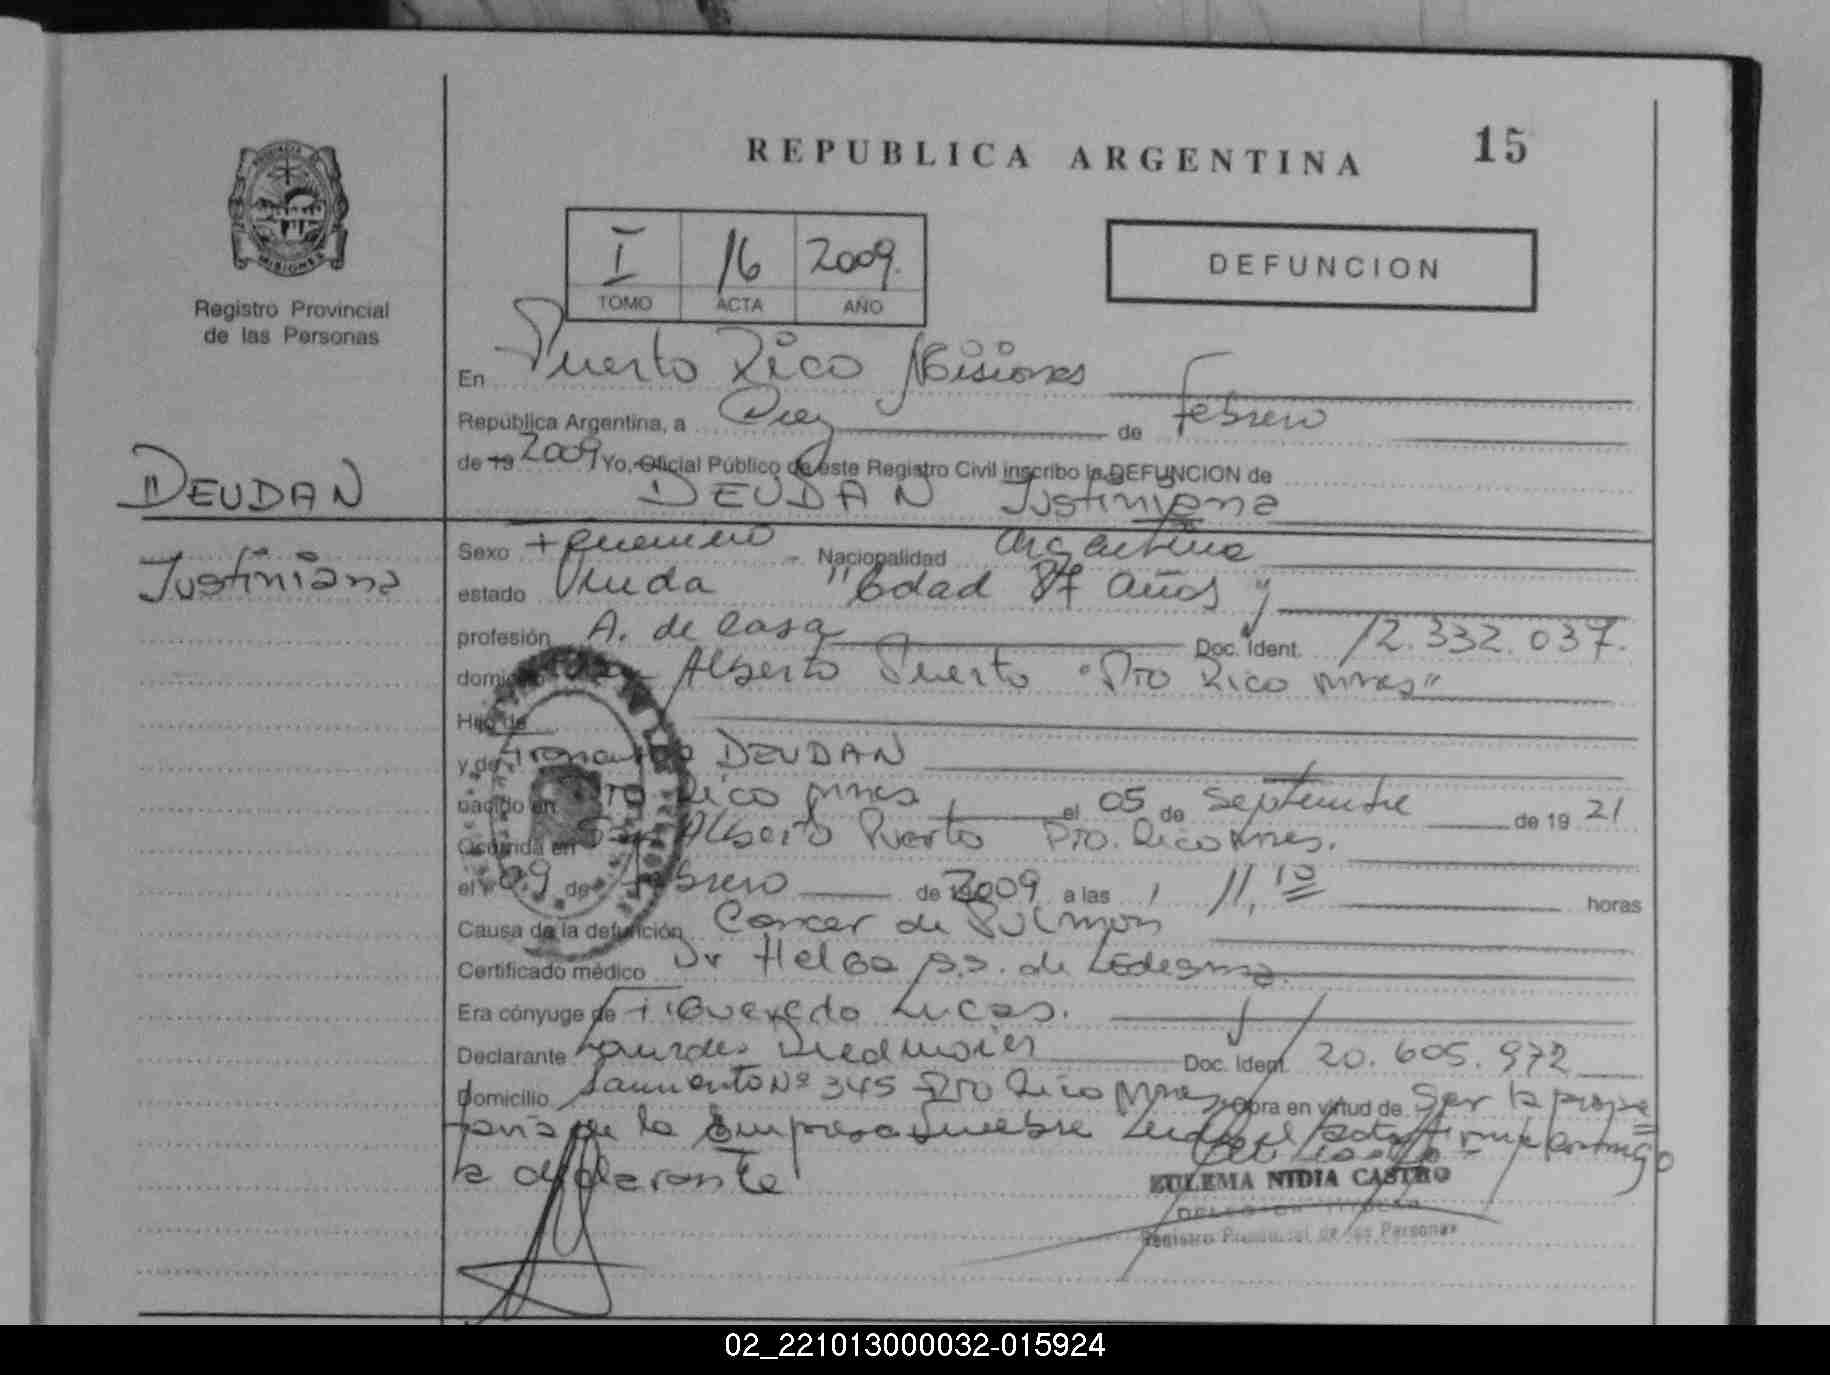 REPUBLICA ARGENTINA 15
PROVINCIA DE
MISIONES
Registro Provincial
de las Personas
I 16 2009.
TOMO ACTA AÑO
DEFUNCION
En Puerto Rico Misiones
República Argentina, a Diez de Febrero
de 19 2009 Yo, Oficial Público de este Registro Civil inscribo la DEFUNCION de
DEUDAN Justiniana
DEUDAN
Justiniana
Sexo Femenino - Nacionalidad Argentina
estado Viuda "Edad 87 años y
profesión A. de Casa Doc. Ident. 12.332.037.
domicilio San Alberto Puerto "Pto Rico Mnes"
Hijo de
y de DEUDAN
nacido en Pto Rico Mnes el 05 de Septiembre de 19 21
Ocurrida en San Alberto Puerto Pto. Rico Mnes.
el 09 de Febrero de 2009 a las 11,10 horas
Causa de la defunción Cancer de Pulmon
Certificado médico Dr Helga S.S. de Ledesma
Era cónyuge de Figueredo Lucas.
Declarante Lourdes Doc. Ident. 20.605.972
Domicilio Sarmiento Nº 345 Pto Rico Mnes Obra en virtud de Ser la propie
taria de la Empresa Funebre acta firma conmigo
la declarante
EULEMA NIDIA CASTRO
DELEGADA TITULAR
Registro Provincial de las Personas
02_221013000032-015924